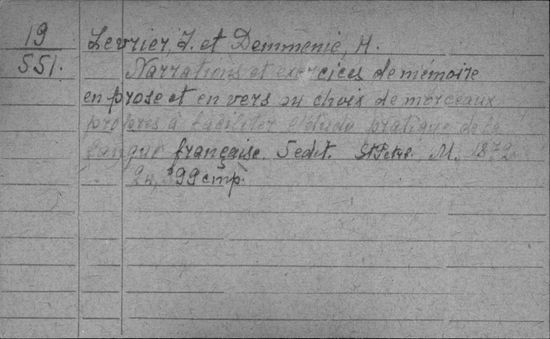 19
551.
Levrier, J. et Demmenie, H.
Narrations et exercices de mémoire
en prose et en vers ou choix de morceaux
propres à faciliter l'étude pratique de la
langue française. 5 edit. St Petrs. M. 1872
199 cmp.